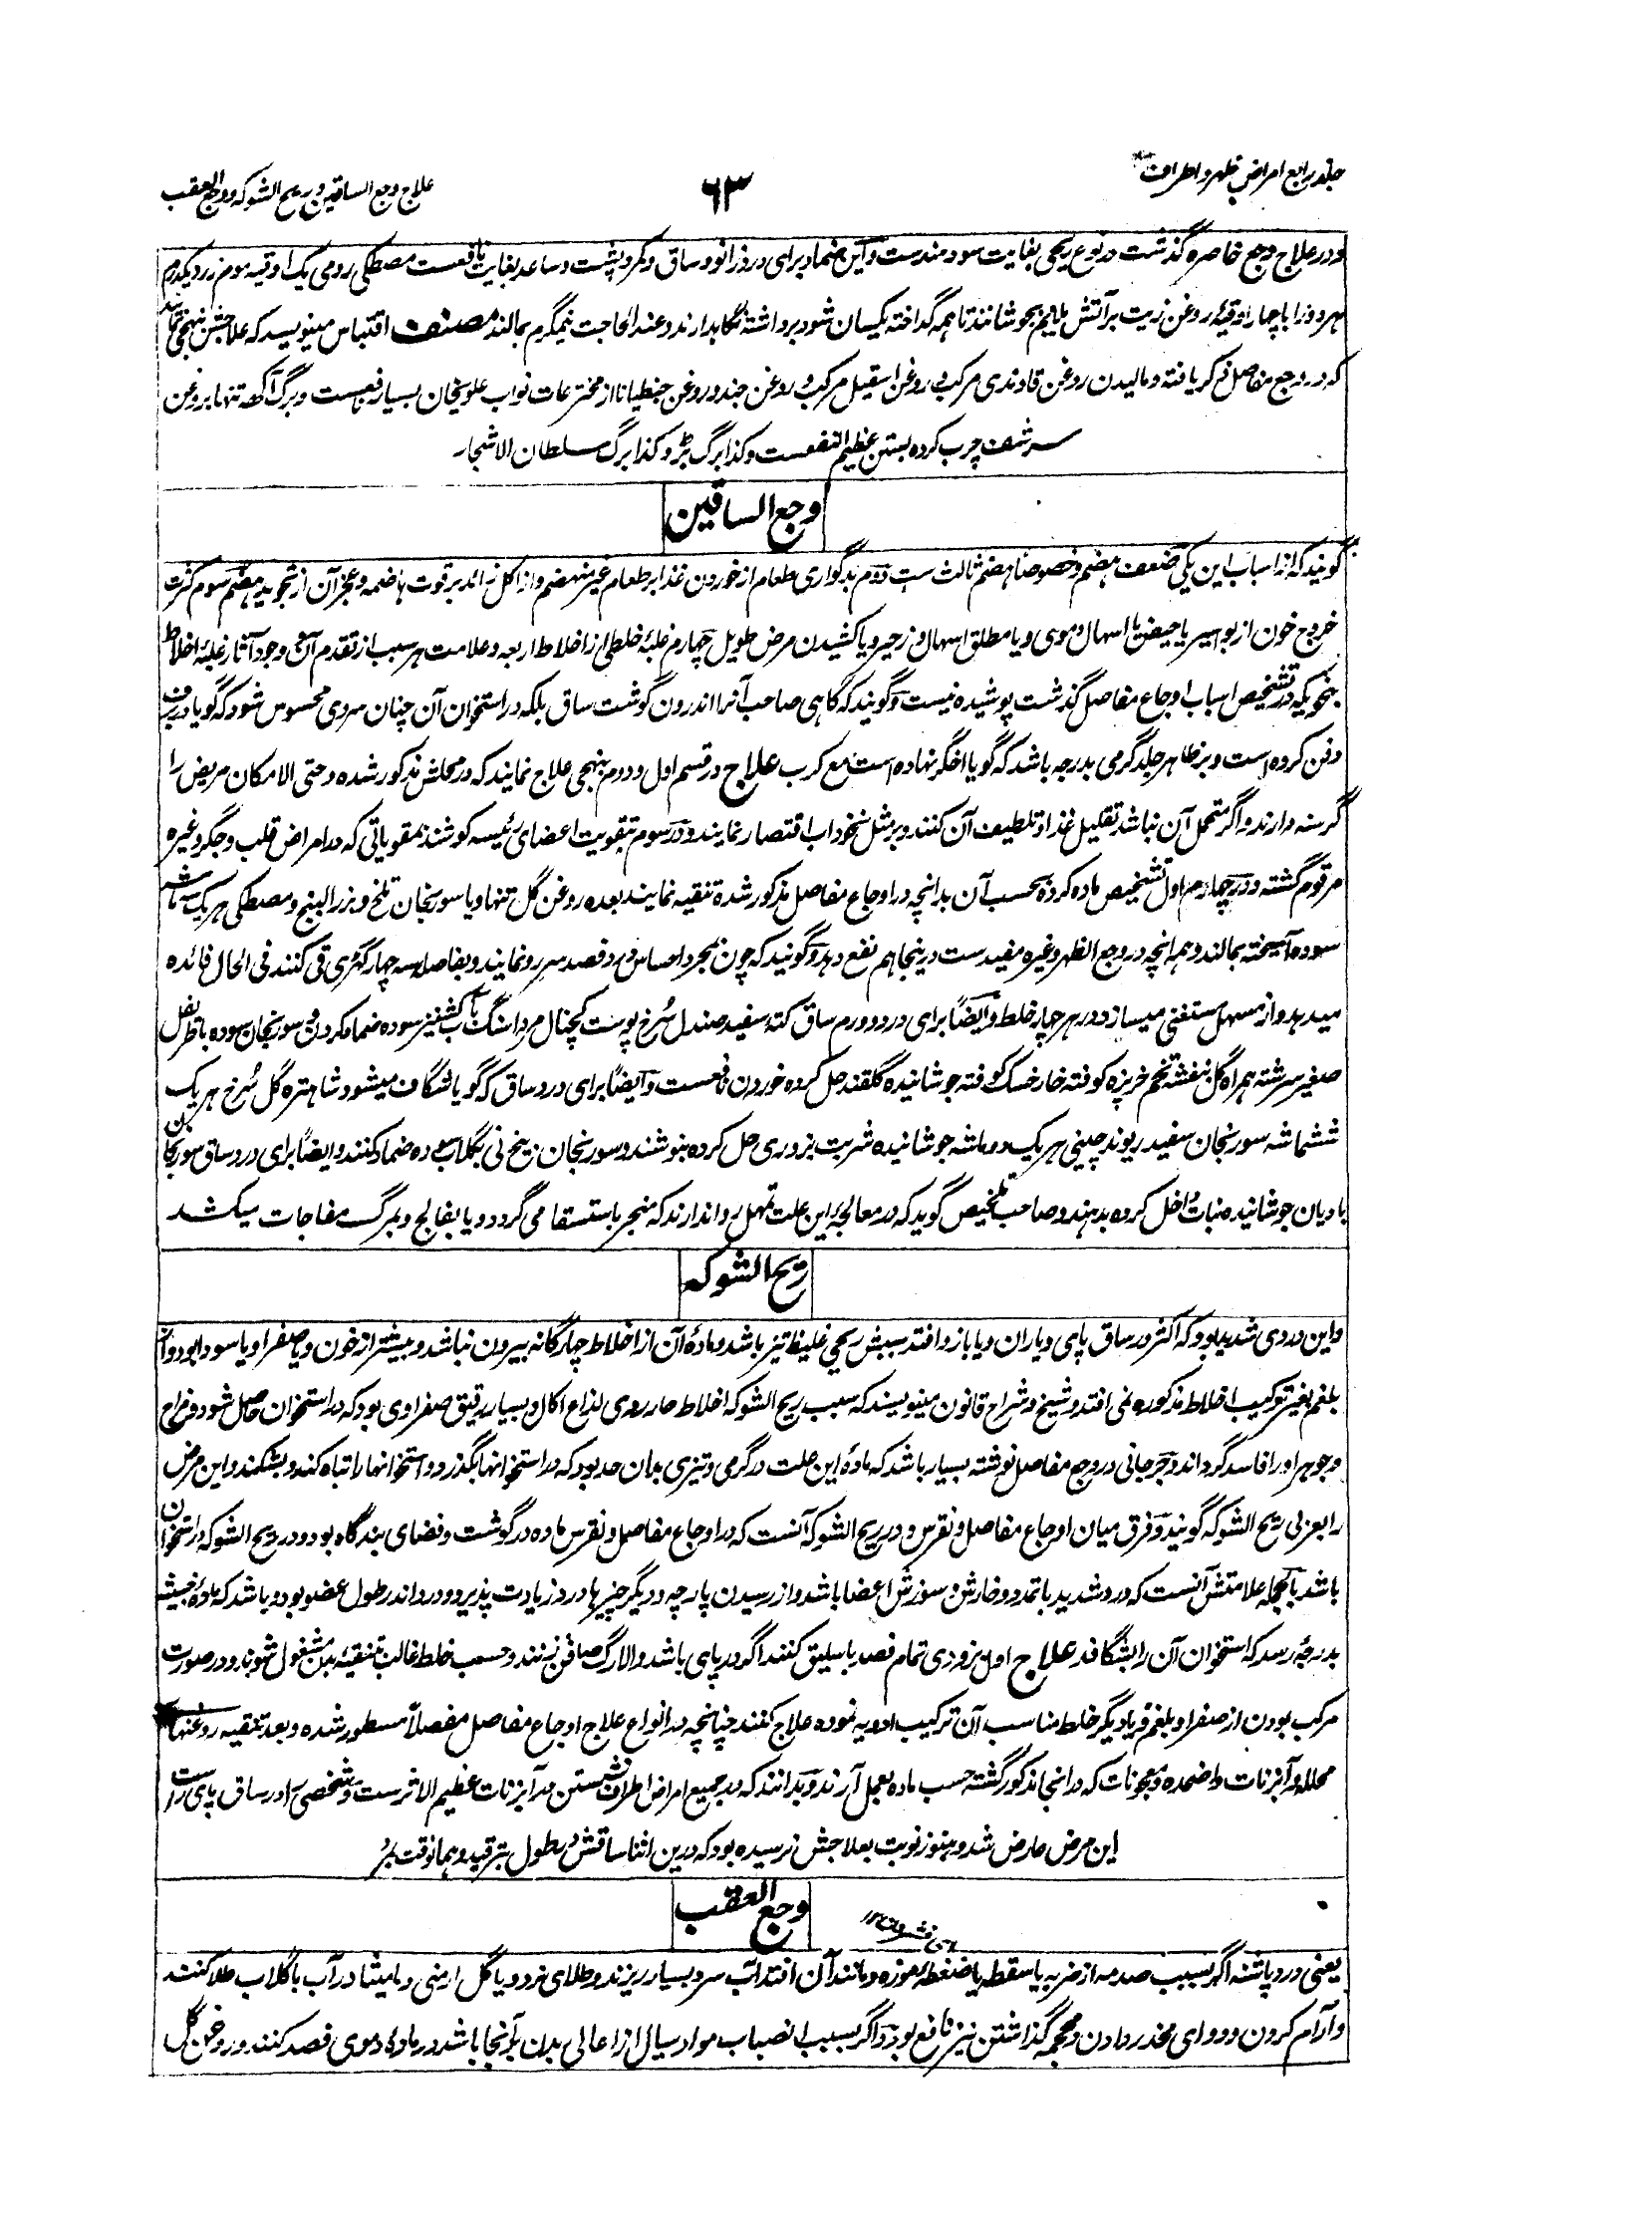 جلد رابع امراض ظهر و اطراف
۶۳
علاج وجع الساقین و ریح الشوکه و وجع العقب
و در علاج وجع خاصره گذشت در نوع ریحی بغایت سودمندست و این ضماد برای درد زانو و ساق و کمر و پشت و ساعد بغایت نافعست مصطکی رومی یک اوقیه موم زرد یکدرم
هر دو را با چهار اوقیهٔ روغن زیت بر آتش ملایم بجوشانند تا همه گداخته یکسان شود برداشته نگاهدارند و عند الحاجت نیمگرم بمالند مصنف اقتباس مینویسد که علاجش بنهجی نمایند
که در وجع مفاصل ذکر یافته و مالیدن روغن قاوندی مرکب و روغن اسقیل مرکب و روغن جند و روغن جنطیانا از مخترعات نواب علویخان بسیار نافعست و برگ آکهه تنها بروغن
سرشف چرب کرده بستن عظیم النفعست و کذا برگ بڑ و کذا برگ سلطان الاشجار
وجع الساقین
گویند که از اسباب این یکی ضعف هضم و خصوصا هضم ثالث ست دوم بدگواری طعام از خوردن غذا بر طعام غیر منهضم و از اکل زائد بر قوت هاضمه و عجز آن از تجوید هضم سوم کثرت
خروج خون از بواسیر یا حیض یا اسهال دموی و یا مطلق اسهال و زحیر و یا کشیدن مرض طویل چهارم غلبهٔ خلطی از اخلاط اربعه و علامت هر سبب از تقدم آن و وجود آثار غلبهٔ اخلاط
بنحویکه در تشخیص اسباب اوجاع مفاصل گذشت پوشیده نیست و گویند که گاهی صاحب آنرا اندرون گوشت ساق بلکه در استخوان آن چنان سردی محسوس شود که گویا در برف
دفن کرده است و بر ظاهر جلد گرمی بدرجه باشد که گویا اخگر نهاده است مع کرب علاج در قسم اول و دوم بنهجی علاج نمایند که در محلش مذکور شده و حتی الامکان مریض را
گرسنه دارند و اگر متحمل آن نباشد تقلیل غذا و تلطیف آن کنند و بر مثل نخوداب اقتصار نمایند و در سوم بتقویت اعضای رئیسه کوشند بمقویاتی که در امراض قلب و جگر و غیره
مرقوم گشته و در چهارم اول تشخیص ماده کرده بحسب آن بدانچه در اوجاع مفاصل مذکور شده تنقیه نمایند بعده روغن گل تنها و یا سورنجان تلخ و بزر البنج و مصطکی هر یک ماشه
سوده آمیخته بمالند و همه انچه در وجع الظهر و غیره مفیدست درینجا هم نفع دهد و گویند که چون بمجرد احساس درد فصد سررو نمایند و بفاصله سه چهار گهڑی قی کنند فی الحال فائده
میدهد و از مسهل مستغنی میسازد در هر چهار خلط و ایضاً برای درد و ورم ساق کتهه سفید صندل سُرخ پوست کچنال مرداسنگ بآب کشنیز سوده ضماد کردن و سورنجان سوده باطریفل
صغیر سرشته همراه گل بنفشه تخم خرپزه کوفته خارخسک کوفته جوشانیده گلقند حل کرده خوردن نافعست و ایضاً برای درد ساق که گویا شگاف میشود شاهتره گل سُرخ هر یک
ششماشه سورنجان سفید ریوند چینی هر یک دو ماشه جوشانیده شربت بزوری حل کرده بنوشند و سورنجان زرنیخ بگلاب سوده ضماد کنند و ایضاً برای درد ساق سورنجان
بادیان جوشانیده نبات داخل کرده بدهند و صاحب تلخیص گوید که در معالجه براین علت تمهل روا ندارند که منجر باستسقا می گردد و یا بفالج و بمرگ مفاجات میکشد
ریح الشوکه
و این دردی شدید بود که اکثر در ساق پای و یا ران و یا بازو افتد سببش ریحی غلیظ تیز باشد و مادهٔ آن از اخلاط چهارگانه بیرون نباشد و بیشتر از خون و یا صفرا و یا سودا بود و از
بلغم بغیر ترکیب اخلاط مذکوره نمی افتد و شیخ و شراح قانون مینویسند که سبب ریح الشوکه اخلاط حاره ردی لذاع اکال و بسیار رقیق صفراوی بود که در استخوان حاصل شود و مزاج
و جوهر او را فاسد گرداند و جرجانی در وجع مفاصل نوشته بسیار باشد که مادهٔ این علت در گرمی و تیزی بدان حد بود که در استخوانها بگذرد و استخوانها را تباه کند و بشکند و این مرض
را بعربی ریح الشوکه گویند و فرق میان اوجاع مفاصل و نقرس و در ریح الشوکه آنست که در اوجاع مفاصل و نقرس ماده در گوشت و فضای بندگاه بود و در ریح الشوکه در استخوان
باشد بالجمله علامتش آنست که درد شدید با تمدد و خارش و سوزش اعضا باشد و از رسیدن پارچه و دیگر چیزها درد زیادت پذیرد و درد اندر طول عضو بود و باشد که مادهٔ خبیثه
بدرجهٔ رسد که استخوان آن را بشگافد علاج اول بزودی تمام فصد باسلیق کنند اگر در پای باشد والا رگ صافن زنند و حسب خلط غالب بتنقیهٔ بدن مشغول شوند و در صورت
مرکب بودن از صفرا و بلغم و یا دیگر خلط مناسب آن ترکیب ادویه نموده علاج کنند چنانچه در انواع علاج اوجاع مفاصل مفصلاً مسطور شده و بعد تنقیه روغنهای
محلله و آبزنات و اضمده و معجونات که در اینجا مذکور گشته حسب ماده بعمل آرند و بدانند که در جمیع امراض اطراف نشستن در آبزنات عظیم الاثرست و شخصی را در ساق پای راست
این مرض عارض شد و هنوز نوبت بعلاجش نرسیده بود که درین اثنا ساقش در طول بترقید و همانوقت بمُرد
وجع العقب
یعنی درد پاشنه اگر بسبب صدمه از ضربه یا سقطه یا ضغطهٔ موزه و مانند آن افتد آب سرد بسیار ریزند و طلای نرد و یا گل ارمنی و مامیثا در آب یا گلاب طلا کنند
و آرام کردن و دوای مخدر دادن و محجمه گذاشتن نیز نافع بود و اگر بسبب انصباب مواد سیال از اعالی بدن بآنجا باشد در مادهٔ دموی فصد کنند و روغن گل